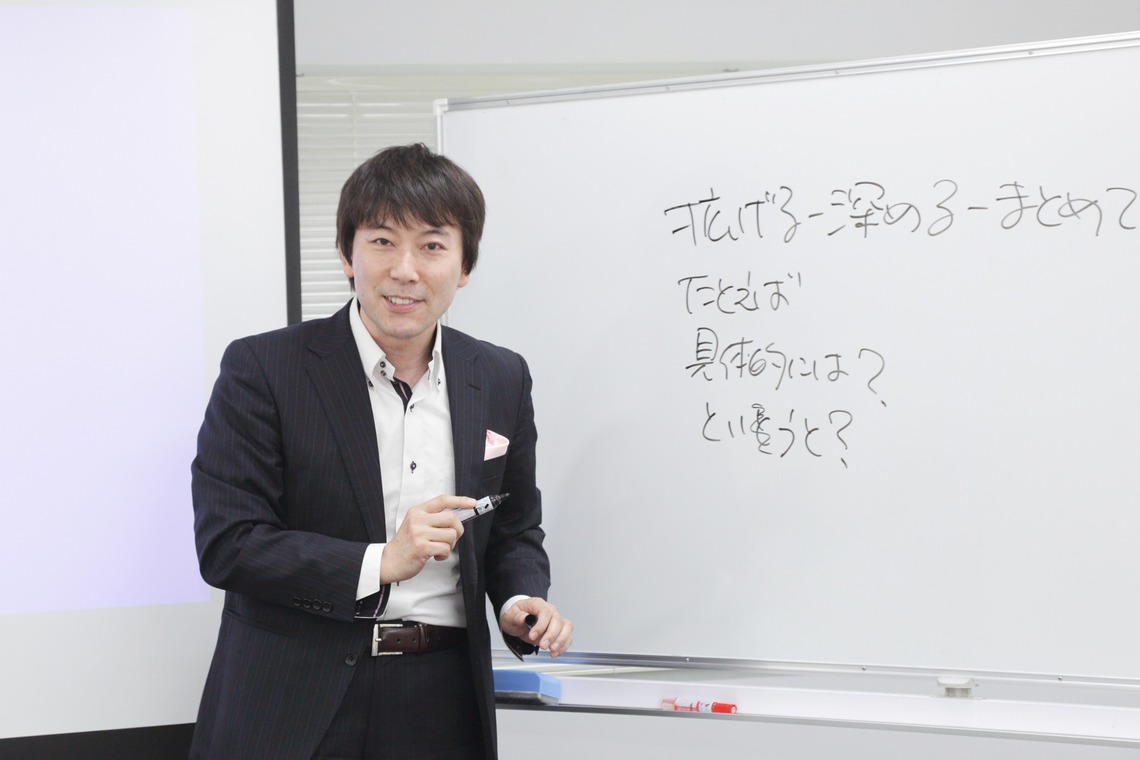 拡げるー深めるーまとめて
たとえば
具体的には?
という うと?